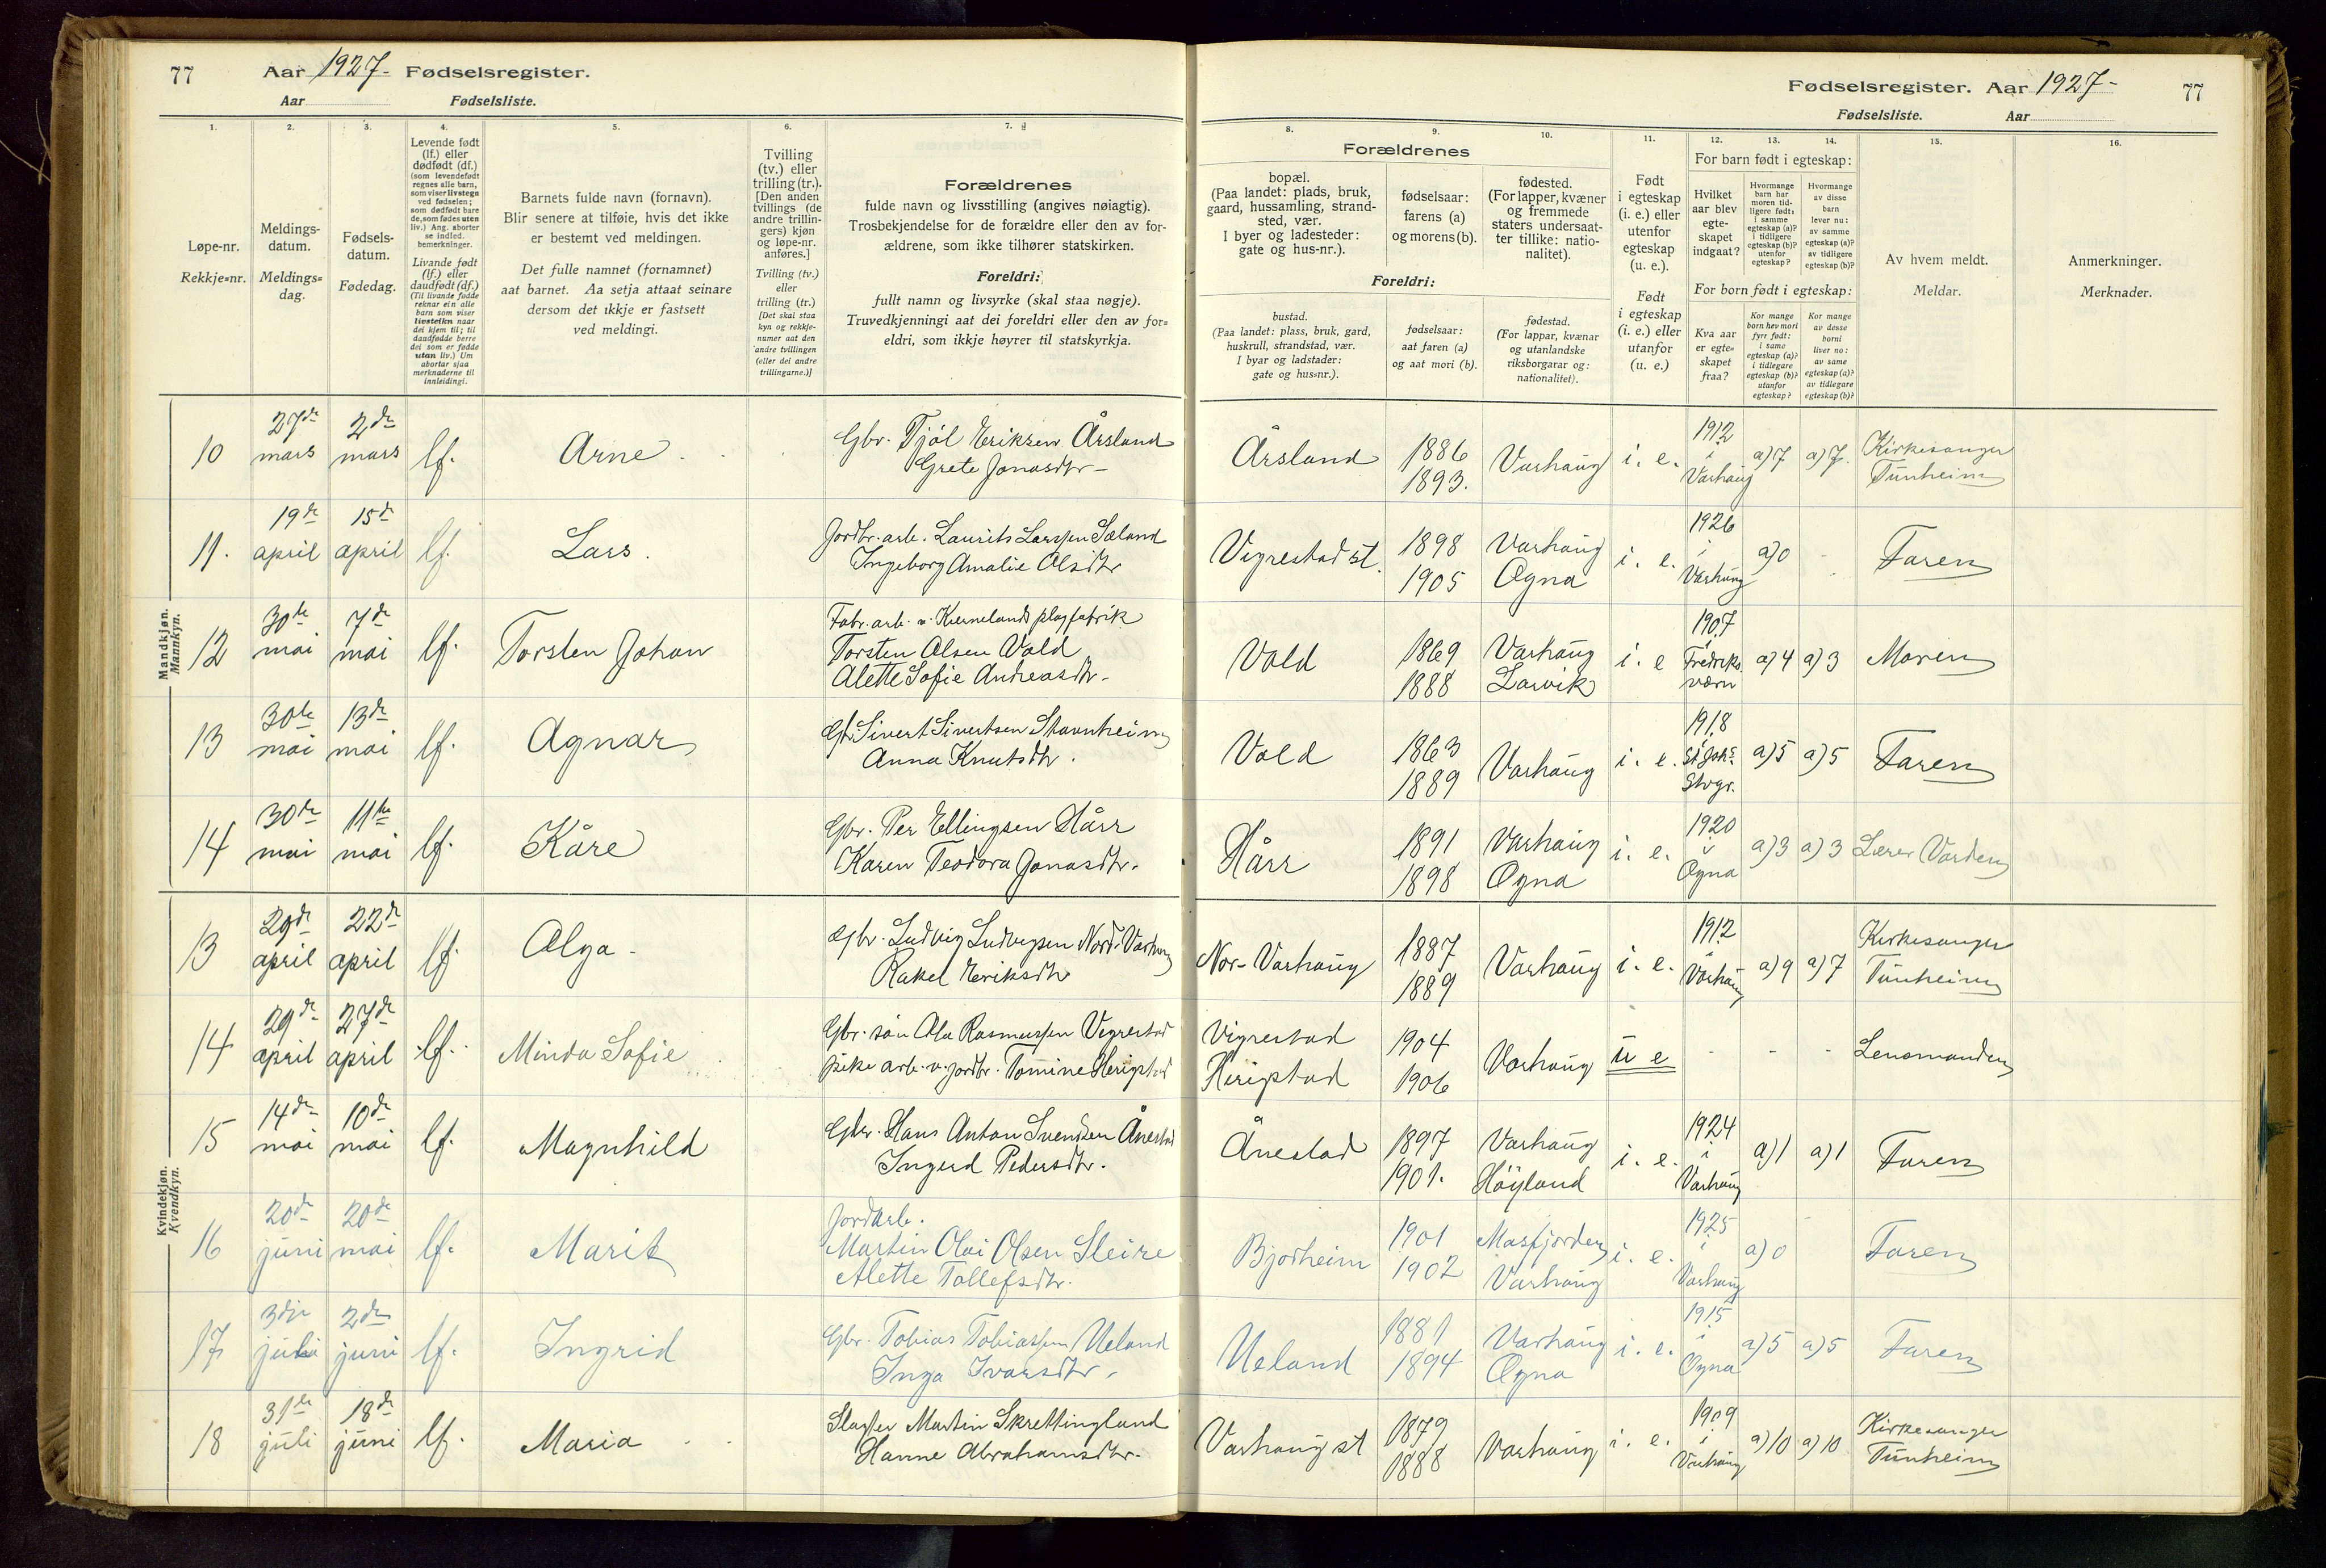 77 Aar 1927- Fødselsregister.
Aar Fødselsliste.
1.
Løpe-nr.
Rekkje=nr.
2.
Meldings-
datum.
Meldings=
dag.
3.
Fødsels-
datum.
Fødedag.
4.
Levende født
(lf.) eller
dødfødt (df.)
(som levendefødt
regnes alle barn,
som viser livstegn
ved fødselen;
som dødfødt bare
de, som fødes uten
liv.) Ang. aborter
se indled.
bemerkninger.
Livande født
(lf.) eller
daudfødt (df.)
(Til livande fødde
reknar ein alle
barn som viser
livsteikn naar
dei kjem til; til
daudfødde berre
dei som er fødde
utan liv.) Um
abortar sjaa
merknaderne til
innleidingi.
5.
Barnets fulde navn (fornavn).
Blir senere at tilføie, hvis det ikke
er bestemt ved meldingen.
Det fulle namnet (fornamnet)
aat barnet. Aa setja attaat seinare
dersom det ikkje er fastsett
ved meldingi.
6.
Tvilling
(tv.) eller
trilling (tr.).
[Den anden
tvillings (de
andre trillin-
gers) kjøn
og løpe-nr.
anføres.]
Tvilling (tv.)
eller
trilling (tr.)
[Det skal staa
kyn og rekkje-
numer aat den
andre tvillingen
(eller dei andre
trillingarne.)]
7.
Forældrenes
fulde navn og livsstilling (angives nøiagtig).
Trosbekjendelse for de forældre eller den av for-
ældrene, som ikke tilhører statskirken.
Foreldri:
fullt namn og livsyrke (skal staa nøgje).
Truvedkjenningi aat dei foreldri eller den av for=
eldri, som ikkje høyrer til statskyrkja.
Mandkjøn.
Mannkyn.
10 27de mars 2de mars lf. Arne
Gbr. Tjøl Eriksen Årsland
Grete Jonasdtr-
11. 19de april 15de april lf. Lars.
Jordbr. arb. Laurits Larssen Sæland
Ingeborg Amalie Olsdtr
12 30te mai 7de mai lf. Torsten Johan
Fabr. arb. v. Kvernelands plogfabrik
Torsten Olsen Vold
Alette Sofie Andreasdtr-
13 30te mai 13de mai lf. Agnar
Gbr. Sivert Sivertsen Stavnheim
Anna Knutsdtr.
14 30te mai 11te mai lf. Kåre
Gbr. Per Ellingsen Hårr
Karen Teodora Jonasdtr.
Kvindekjøn.
Kvendkyn.
13 29de april 22de april lf. Olga-
Gbr. Ludvig Ludvigsen Nord-Varhaug
Rakel Eriksdtr
14 29de april 27de april lf. Minda Sofie
Gbr. søn Ola Rasmussen Vigrestad
pike arb. v. jordbr. Tomine Herigstad
15 14de mai 10de mai lf. Magnhild
Gbr. Hans Anton Svendsen Ånestad
Ingrid Pedersdtr.
16 20de juni 20de mai lf. Marit
Jordarb.
Martin Olai Olsen Sleire
Alette Tollefsdtr.
17 3dje juli 2den juni lf. Ingrid
Gbr. Tobias Tobiassen Ueland
Inga Ivarsdtr.
18 31te juli 18de juni lf. Maria
Slagter Martin Skrettingland
Hanne Abrahamsdtr.
Fødselsregister. Aar 1927- 77
Fødselsliste. Aar
Forældrenes
8.
bopæl.
(Paa landet: plads, bruk,
gaard, hussamling, strand-
sted, vær.
I byer og ladesteder:
gate og hus-nr.).
Foreldri:
bustad.
(Paa landet: plass, bruk, gard,
huskrull, strandstad, vær.
I byar og ladstader:
gate og hus=nr.).
9.
fødselsaar:
farens (a)
og morens (b).
fødselsaar:
aat faren (a)
og aat mori (b).
10.
fødested.
(For lapper, kvæner
og fremmede
staters undersaat-
ter tillike: natio-
nalitet).
fødestad.
(For lappar, kvænar
og utanlandske
riksborgarar og:
nationalitet).
11.
Født
i egteskap
(i. e.) eller
utenfor
egteskap
(u. e.).
Født
i egteskap
(i. e.) eller
utanfor
(u. e.)
For barn født i egteskap:
12.
Hvilket
aar blev
egte-
skapet
indgaat?
13.
Hvormange
barn har
moren tid-
ligere født:
i samme
egteskap (a)?
i tidligere
egteskap (b)?
utenfor
egteskap?
14.
Hvormange
av disse
barn
lever nu:
av samme
egteskap (a)?
av tidligere
egteskap (b)?
For born født i egteskap:
Kva aar
er egte=
skapet
fraa?
Kor mange
born hev mori
fyrr født:
i same
egteskap (a)?
i tidlegare
egteskap (b)?
utanfor
egteskap?
Kor mange
av desse
borni
liver no:
av same
egteskap (a)?
av tidlegare
egteskap (b)?
15.
Av hvem meldt.
Meldar.
16.
Anmerkninger.
Merknader.
Årsland 1886 1893. Varhaug i. e. 1912 i Varhaug a) 7 a) 7. Kirkesanger Tunheim
Vigrestad st. 1898 1905 Varhaug Ogna i. e. 1926 i Varhaug a) 0 - Faren
Vold 1869 1888 Varhaug Larvik i. e 1907 i Fredriksværn a) 4 a) 3 Moren
Vold 1863 1889 Varhaug i. e. 1918 St. Joh. Stvgr. a) 5 a) 5 Faren
Hårr 1891 1898 Varhaug Ogna i. e. 1920 i Ogna a) 3 a) 3 Lærer Varden
Nor-Varhaug 1887 1889 Varhaug i. e. 1912 i Varhaug a) 9 a) 7 Kirkesanger Tunheim
Vigrestad Herigstad 1904 1906 Varhaug u e - - - Lensmanden
Ånestad 1897 1901. Varhaug Höyland i. e. 1924 i Varhaug a) 1 a) 1 Faren
Bjorheim 1901 1902 Masfjorden Varhaug i. e. 1925 i Varhaug a) 0 - Faren
Ueland 1881 1894 Varhaug Ogna i. e. 1915 i Ogna a) 5 a) 5 Faren
Varhaug st 1879 1888 Varhaug i. e. 1909 i Varhaug a) 10 a) 10 Kirkesanger Tunheim